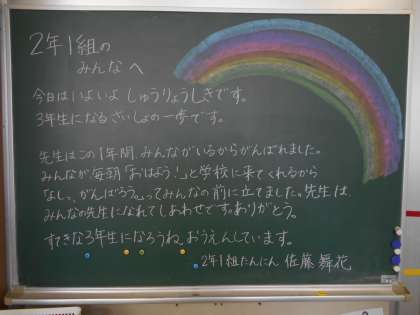 2年1組の
みんなへ
今日はいよいよ しゅうりょうしきです。
3年生になるさいしょの一歩です。
先生はこの1年間、みんながいるからがんばれました。
みんなが毎朝「おはよう!」と学校に来てくれるから
「よしっ、がんばろう。」ってみんなの前に立てました。先生は、
みんなの先生になれてしあわせです。ありがとう。
すてきな3年生になろうね。おうえんしています。
2年1組たんにん 佐藤 舞花